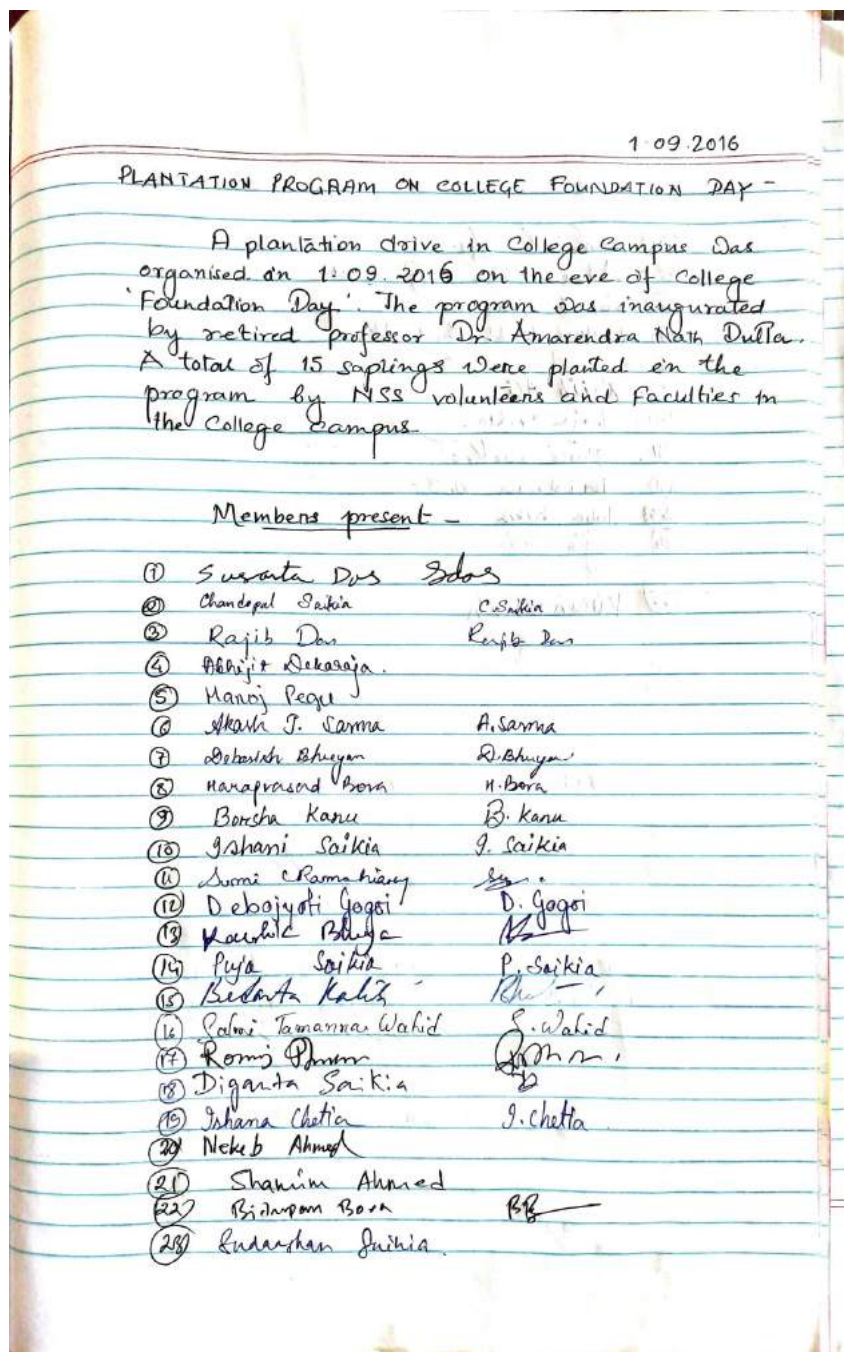 1.09.2016
PLANTATION PROGRAM ON COLLEGE FOUNDATION DAY -
A plantation drive in College Campus was
organised on 1.09.2016 on the eve of College
'Foundation Day'. The program was inaugurated
by retired professor Dr. Amarendra Nath Dutta.
A total of 15 saplings were planted in the
program by NSS volunteers and Faculties in
the College Campus.
Members present -
① Susanta Das SDas
② Chandopal Saikia C.Saikia
③ Rajib Das Rajib Das
④ Abhijit Dekaraja.
⑤ Manoj Pegu
⑥ Akash J. Sarma A.Sarma
⑦ Debasish Bhuyan D.Bhuyan
⑧ Haraprasad Bora H.Bora
⑨ Borsha Kanu B. Kanu
⑩ Ishani Saikia I. Saikia
⑪
⑫ Debojyoti Gogoi D. Gogoi
⑬ Koushik
⑭ Puja Saikia P. Saikia
⑮ Bedanta Kalita
⑯ Salmi Tamanna Wahid S. Wahid
⑰
⑱ Diganta Saikia
⑲ Ishana Chetia I. Chetia
⑳ Nekib Ahmed
㉑ Shamim Ahmed
㉒ Bidyapam Bora BB
㉓ Sudarshan Saikia.